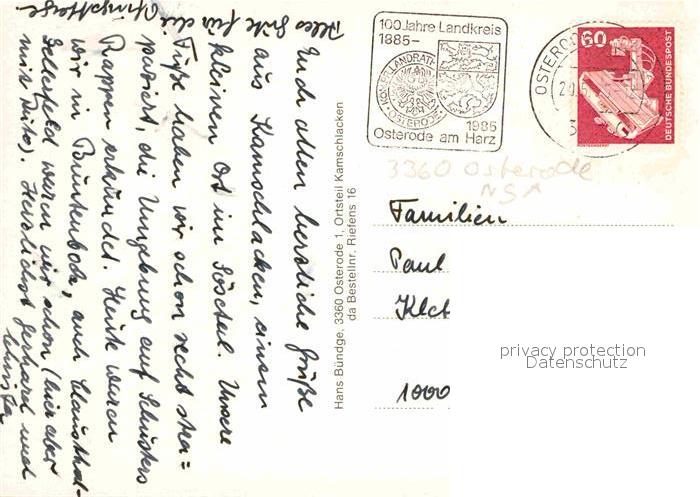 Alles Gute für die
Euch allen herzliche Grüße
aus Kamschlacken, einem
kleinen Ort im Söseteil. Unsere
Füße haben wir schon recht stra=
paziert, die Umgebung auf Schusters
Rappen erkundet. Heute waren
wir in Buntenbock, auch Clausthal-
Zellerfeld waren wir schon (hier aber
mit Auto). Herzlichst Gerhard und
Christa
Hans Bündge, 3360 Osterode 1, Ortsteil Kamschlacken
da Bestellnr. Riefens 16
100 Jahre Landkreis
1885-
1985
Osterode am Harz
OSTEROD
60
DEUTSCHE BUNDESPOST
RÖNTGENGERÄT
3360 Osterode
NSA
Familien
Paul
1000
privacy protection
Datenschutz